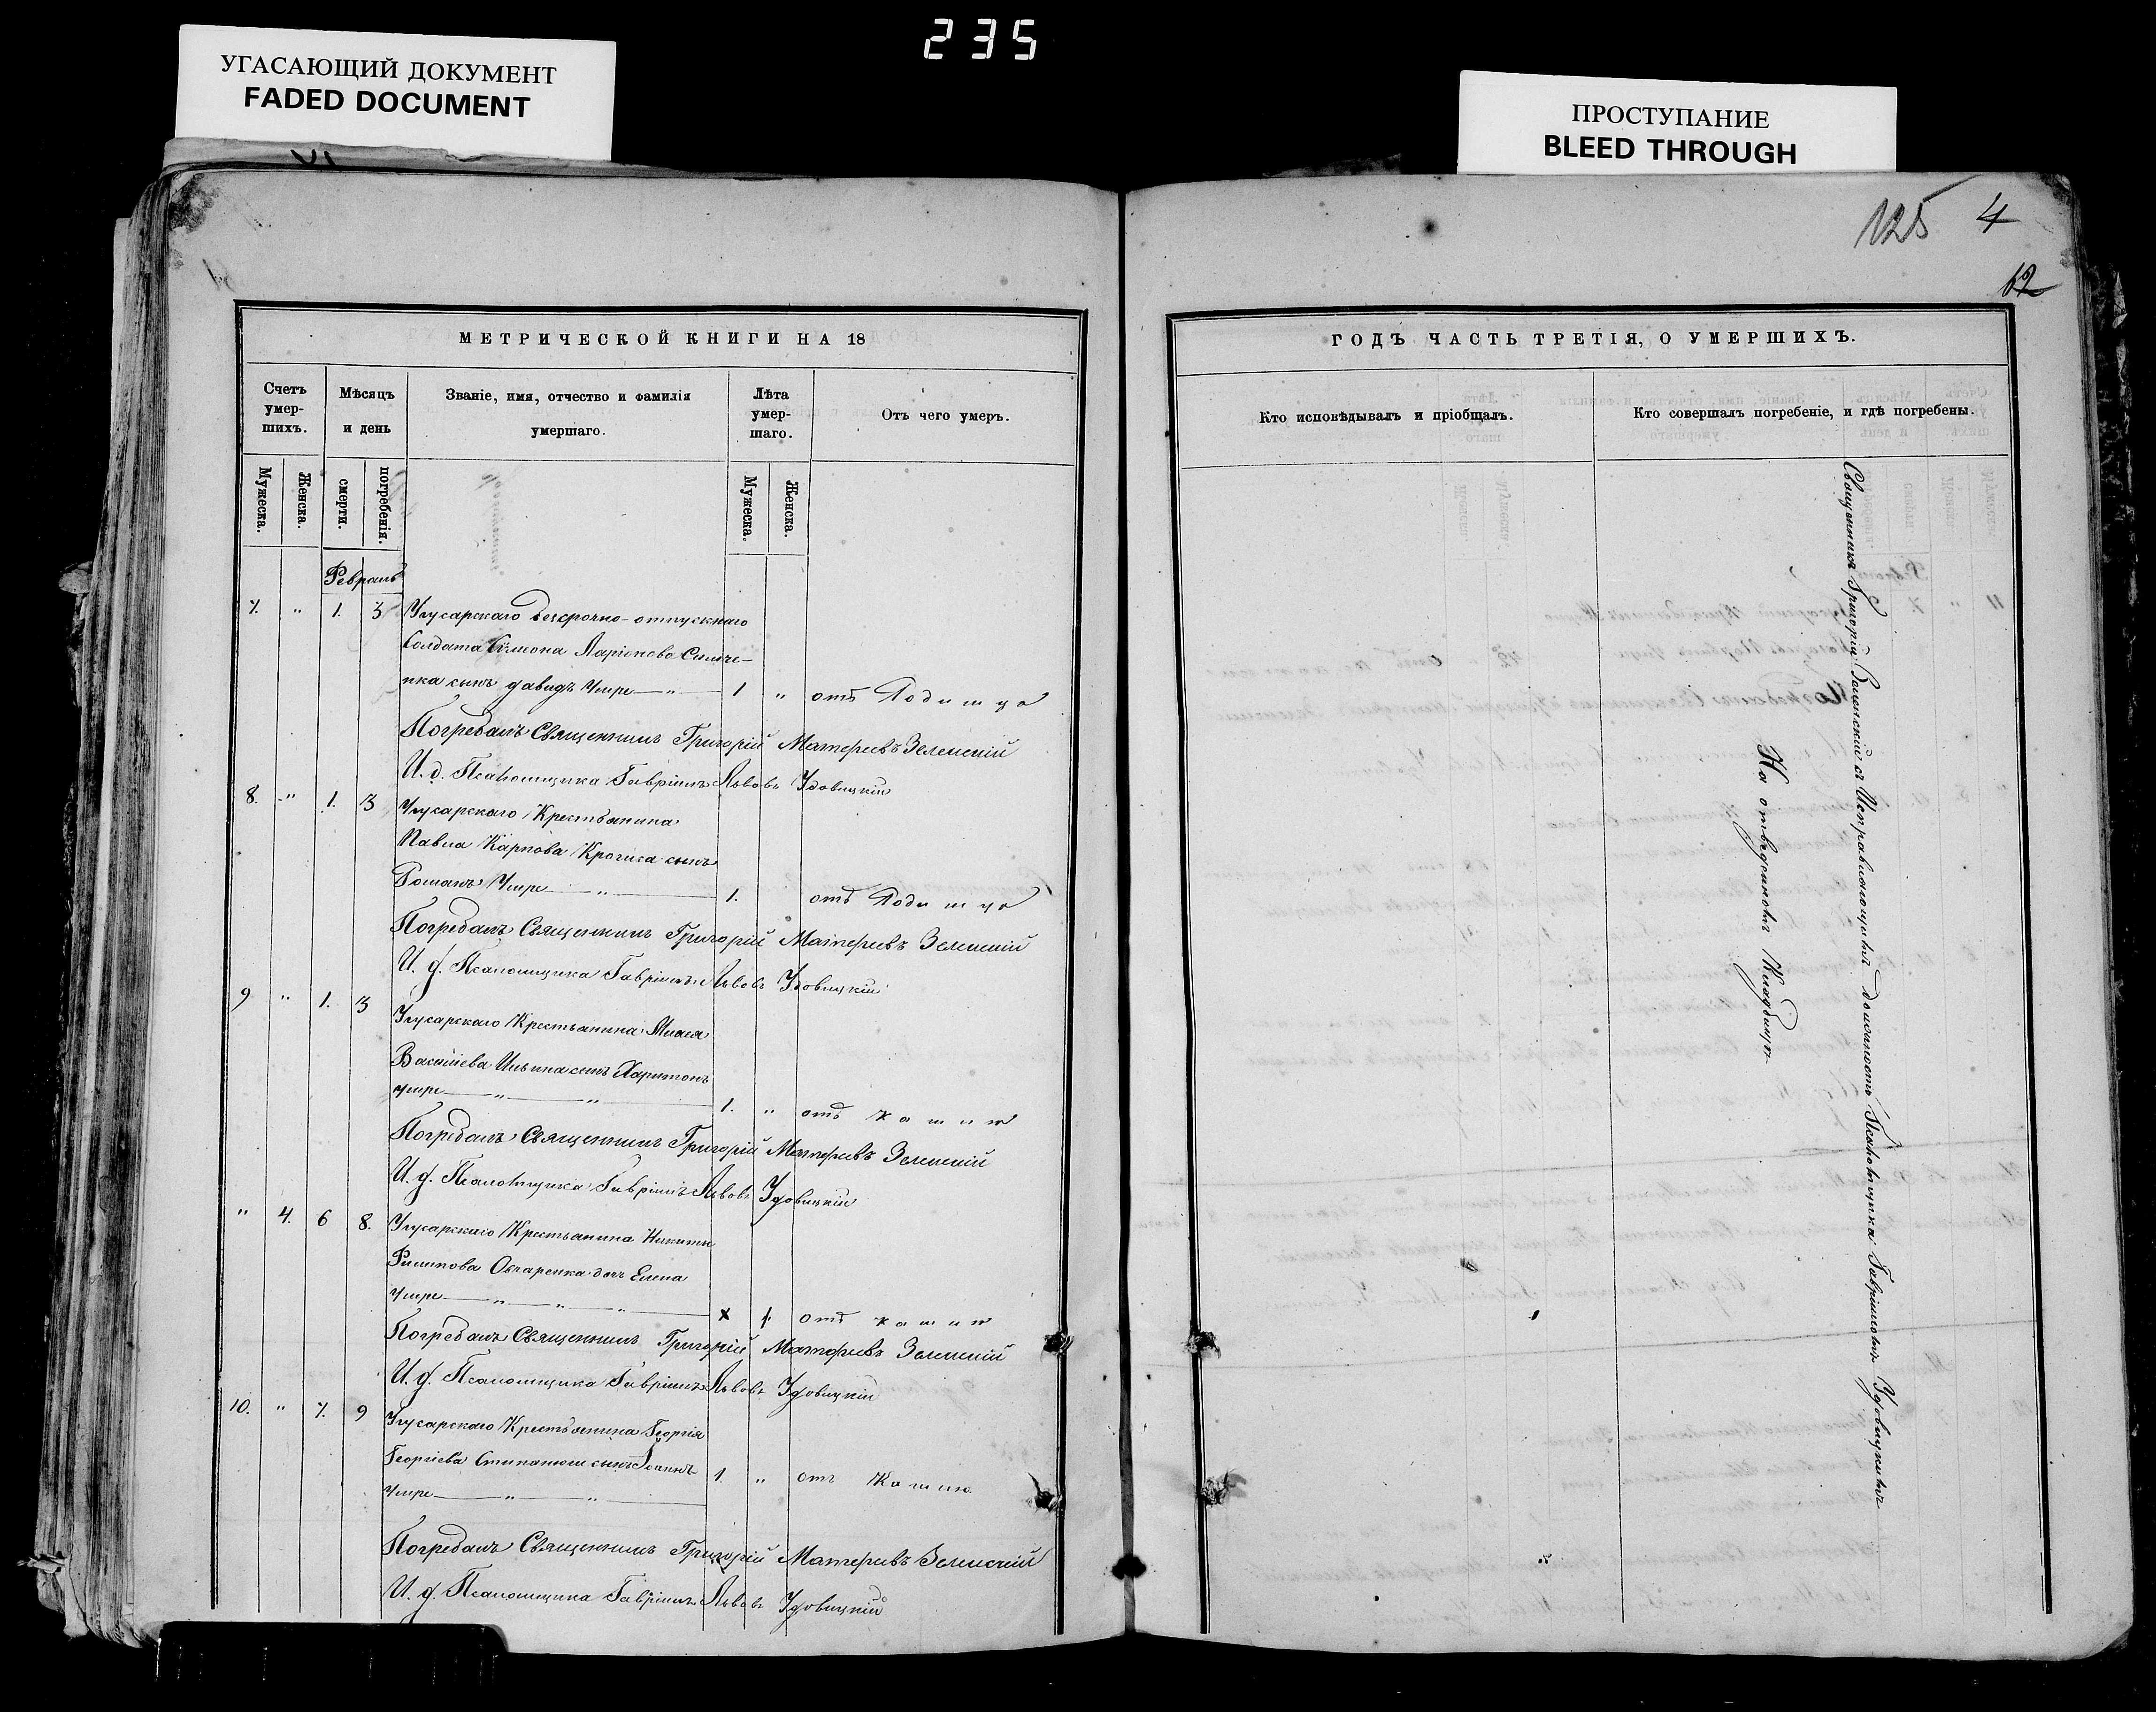 235
УГАСАЮЩИЙ ДОКУМЕНТ
FADED DOCUMENT
ПРОСТУПАНИЕ
BLEED THROUGH
125 4
12
МЕТРИЧЕСКОЙ КНИГИ НА 18
Счетъ умер-шихъ.
Мѣсяцъ и день
Званіе, имя, отчество и фамилія умершаго.
Лѣта умер-шаго.
Отъ чего умеръ.
Мужеска.
Женска.
смерти.
погребенія.
Мужеска.
Женска.
Февраль
7. " 1. 3 безсрочно-отпускнаго
Солдата Симеона Ларіонова
сынъ Давидъ Умре — " — 1 " отъ Родимца
Погребалъ Священникъ Григорій Матфеевъ Зеленскій
И. д. Псаломщика Гавріилъ Львовъ Удовицкій
8. " 1. 3 Крестьянина
Павла Карпова сынъ
Романъ Умре — " — 1. отъ Родимца
Погребалъ Священникъ Григорій Матфеевъ Зеленскій
И. д. Псаломщика Гавріилъ Львовъ Удовицкій
9 " 1. 3 Крестьянина
Васильева Ильина сынъ Харитонъ
умре — " — " — 1. " отъ Кашля
Погребалъ Священникъ Григорій Матфеевъ Зеленскій
И. д. Псаломщика Гавріилъ Львовъ Удовицкій
" 4. 6 8. Крестьянина Никиты
Филипова Овчаренка дочь Елена
Умре — " — " — " — х 1. отъ кашля
Погребалъ Священникъ Григорій Матфеевъ Зеленскій
И. д. Псаломщика Гавріилъ Львовъ Удовицкій
10. " 7. 9 Крестьянина Георгія
Георгіева сынъ Іоаннъ
Умре — " — " — 1. " отъ Кашлю
Погребалъ Священникъ Григорій Матфеевъ Зеленскій
И. д. Псаломщика Гавріилъ Львовъ Удовицкій
ГОДЪ ЧАСТЬ ТРЕТІЯ, О УМЕРШИХЪ.
Кто исповѣдывалъ и пріобщалъ.
Кто совершалъ погребеніе, и гдѣ погребены.
Священникъ Григорій Зеленскій съ Исправляющимъ должность Псаломщика Гавріиломъ Удовицкимъ
На отведенномъ Кладбищѣ